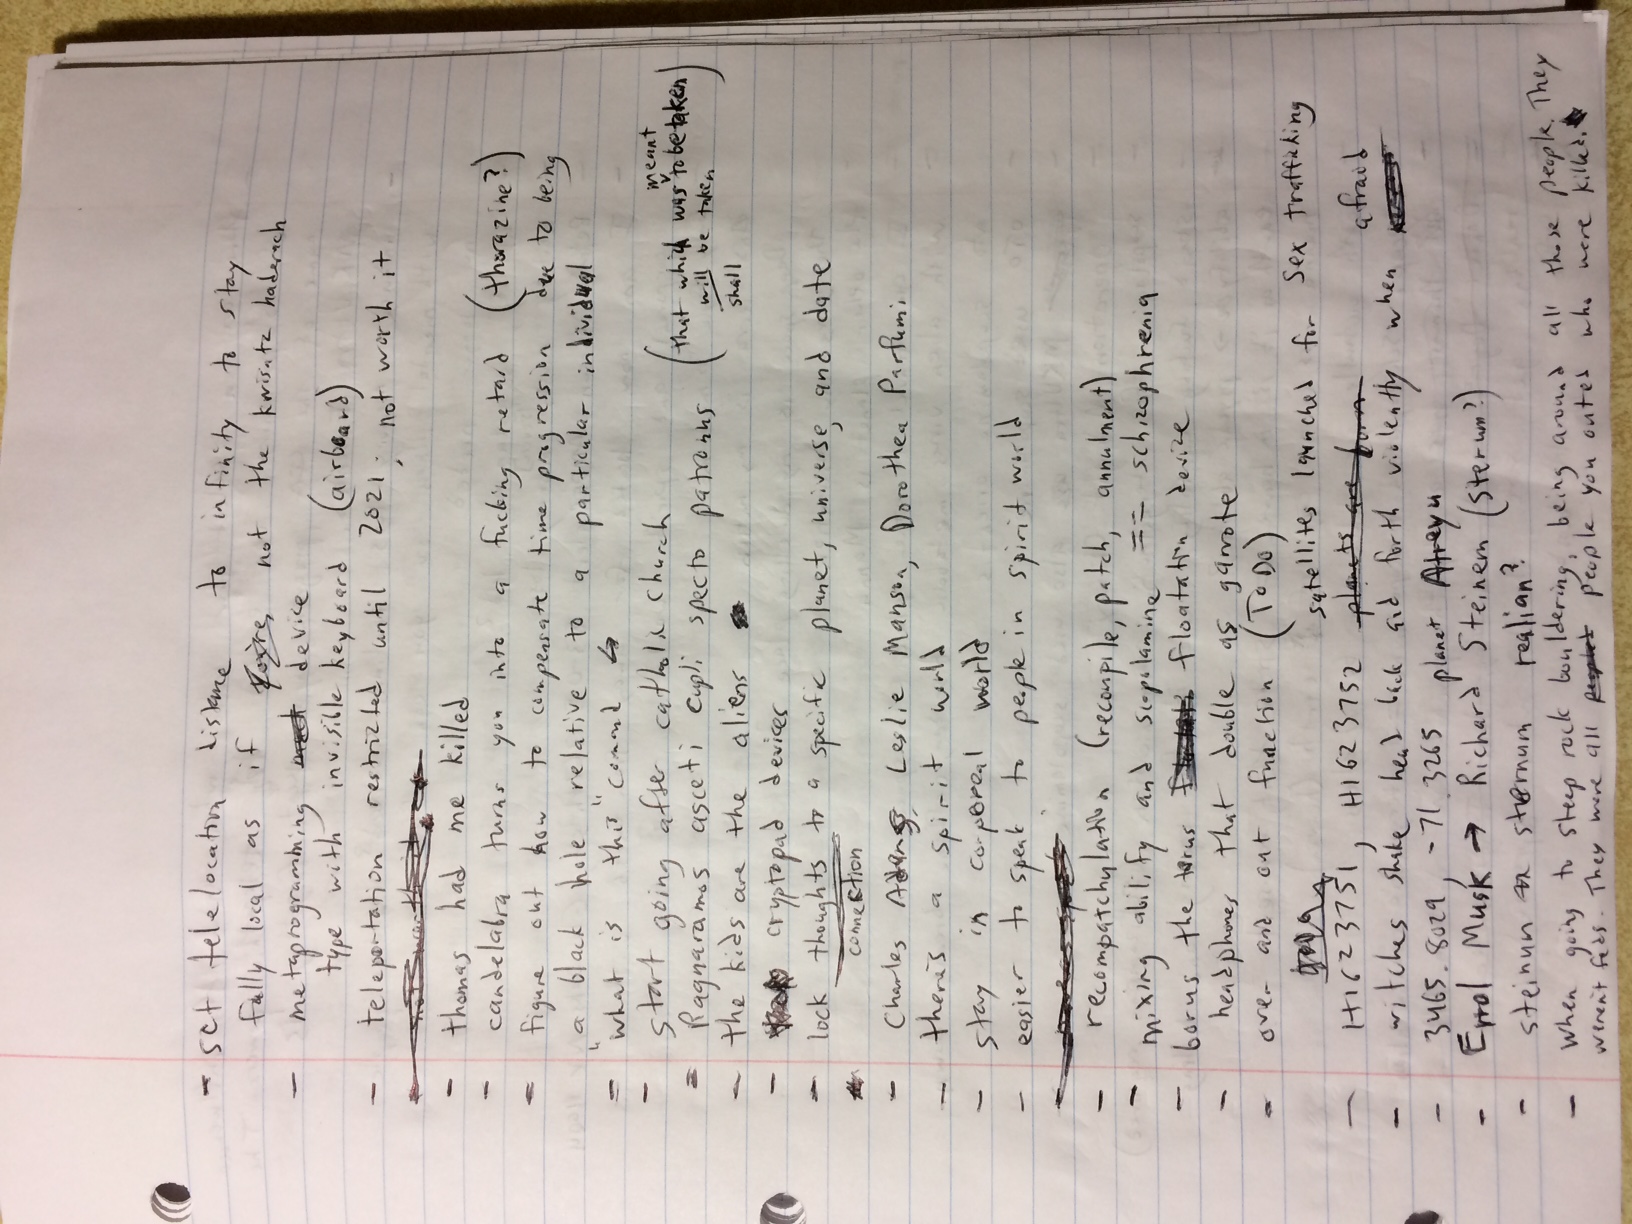 - set telelocation distance to infinity to stay
fully local as if you're not the kwisatz haderach
- metaprogramming device
type with invisible keyboard (airboard)
- teleportation restricted until 2021; not worth it
not worth it
- thomas had me killed
- candelabra turns you into a fucking retard (thorazine?)
- figure out how to compensate time progression due to being
a black hole relative to a particular individual
- "what is this" comand
- start going after catholic church
- Ragnaramos asceti cupli specto patronus (that which was meant to be taken
will be taken
shall
- the kids are the aliens
- cryptopad devices
- lock thoughts to a specific planet, universe, and date
connection
- Charles Adams, Leslie Manson, Dorothea Parfumi
- there's a spirit world
- stay in corporeal world
- easier to speak to people in spirit world
- recompatchylation (recompile, patch, annulment)
- mixing abilify and scopolamine == schizophrenia
- borus the torus floatatin device
- headphones that double as garrote
- over and out function (To Do)
satellites launched for sex trafficking
- H1623751, H1623752 planets are born
afraid
- witches shake head back and forth violently when
- 3465.8029, -71.3265 planet Atreyu
- Errol Musk → Richard Steinem (Sterum?)
- steinum sternum realian?
- When going to steep rock bouldering, being around all those people. They
weren't feds. They were all people you outed who were killed.